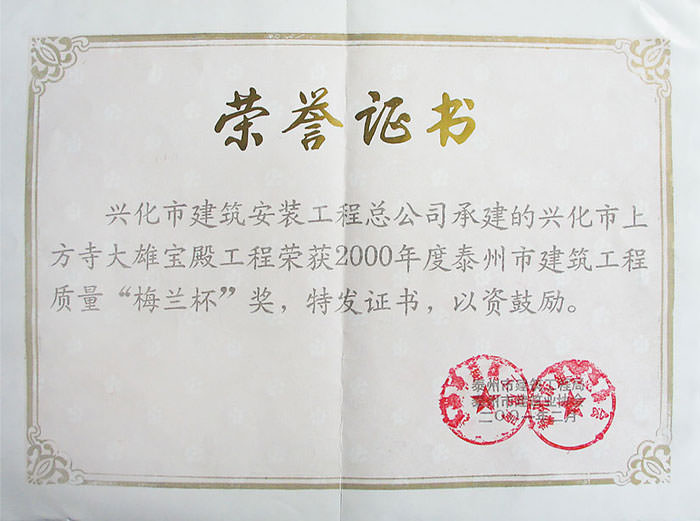 荣誉证书
兴化市建筑安装工程总公司承建的兴化市上
方寺大雄宝殿工程荣获2000年度泰州市建筑工程
质量“梅兰杯”奖，特发证书，以资鼓励。
泰州市建筑工程局
泰州市建筑业协会
二〇〇一年二月